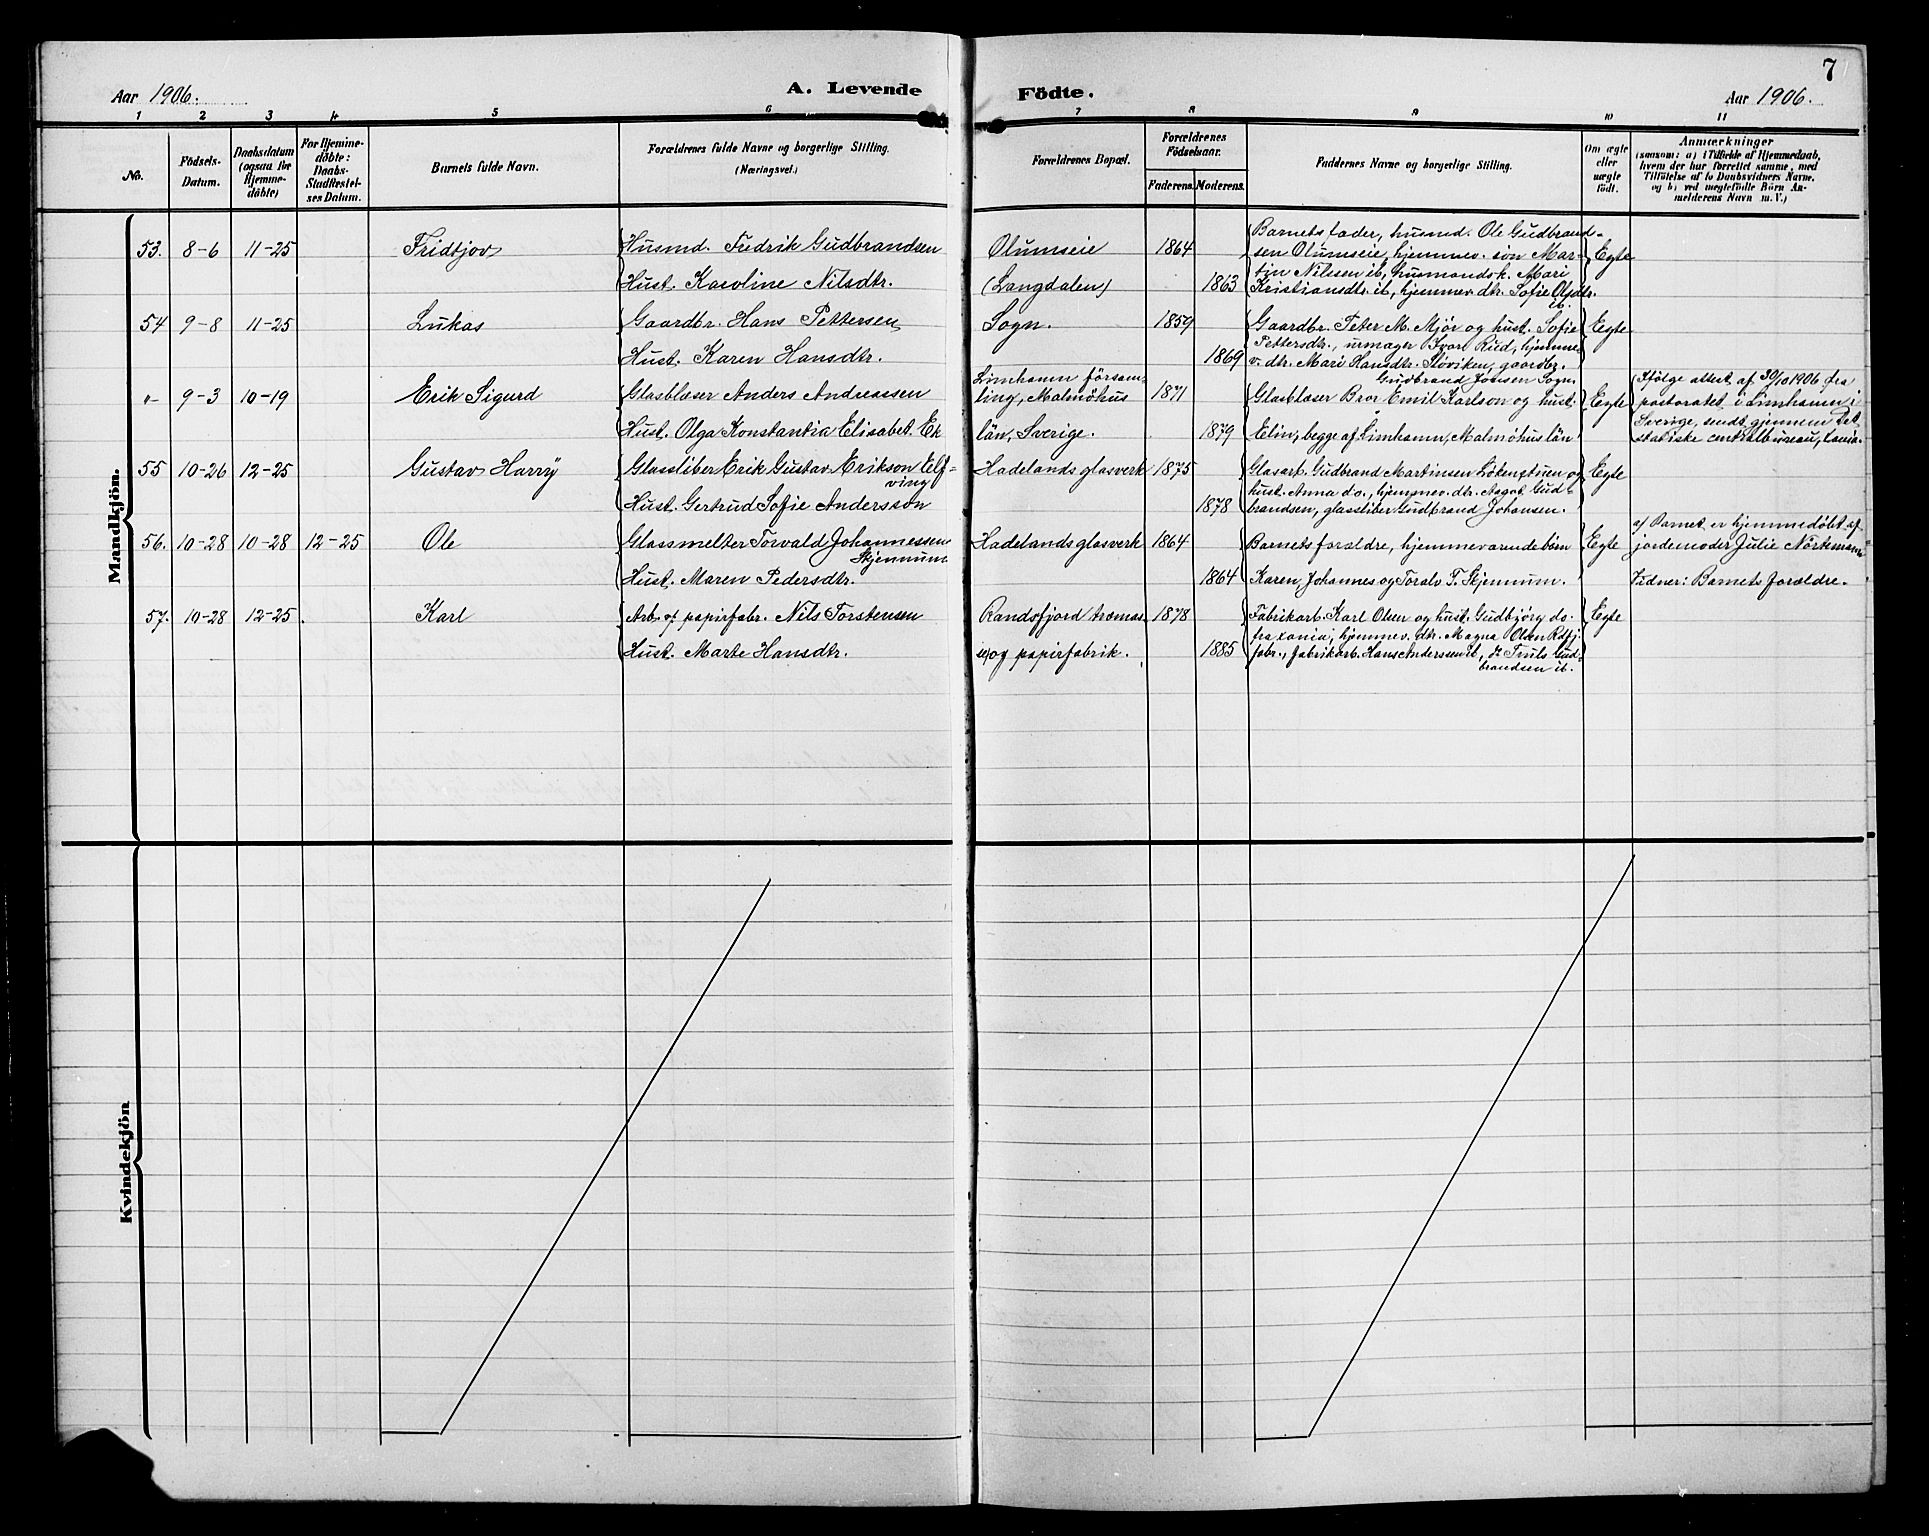 7
Aar 1906.
A. Levende Födte.
Aar 1906.
1 2 3 4 5 6 7 8 9 10 11
No.
Födsels-
Datum.
Daabsdatum
(ogsaa for
Hjemme-
döbte)
For Hjemme-
döbte:
Daabs-
Stadfestel-
ses Datum.
Barnets fulde Navn.
Forældrenes fulde Navne og borgerlige Stilling.
(Næringsvei.)
Forældrenes Bopæl.
Forældrenes
Födselsaar.
Faderens. Moderens.
Faddernes Navne og borgerlige Stilling.
Om ægte
eller
uægte
födt.
Anmærkninger
(saasom: a) i Tilfælde af Hjemmedaab,
hvem der har forrettet samme, med
Tilföielse af to Daabsvidners Navne.
og b) ved uægtefödte Börn An-
melderens Navn m. V.)
Mandkjön.
53. 8-6 11-25 Fridtjov
Husmd. Fredrik Gudbrandsen
Hust. Karoline Nilsdtr.
Olumseie
(Langdalen)
1864
1863
Barnets fader, husmd. Ole Gudbrand-
sen Olumseie, hjemmev. søn Mar-
tin Nilssen ib, husmandsk. Mari
Kristiansdtr. ib, hjemmev. dtr. Sofie Olsdtr.
ib.
Egte
54 9-8 11-25 Lukas
Gaardbr. Hans Pettersen
Hust. Karen Hansdtr.
Sogn.
1859
1869
Gaardbr. Peter M. Mjør og hust. Sofie
Pettersdtr., urmager Ivar Rud, hjemme-
v. dtr. Mari Hansdtr. Sløviken, gaardbr.
Gudbrand Jonsen Sogn.
Egte
"- 9-3 10-19 Erik Sigurd
Glasblaser Anders Andreasen
Hust. Olga Konstantia Elisabet Ek
Limhamn försam-
ling, Malmöhus
län, Sverige.
1871
1879
Glasblaser Bror Emil Karlson og hust.
Elin, begge af Limhamn, Malmöhus län
Egte
Ifølge attest af 30/10 1906 fra
pastoratet i Limhamn i
Sverige, sendt gjennem det
statiske centralbureau,
55 10-26 12-25 Gustav Harry
Glassliber Erik Gustav Erikson Elf-
ving
Hust. Gertrud Sofie Andersson
Hadelands glasverk
1875
1878
Glasarb. Gudbrand Martinsen Løkenstuen og
hust. Anna do., hjemmev. dtr. Aagot Gud-
brandsen, glassliber Gudbrand Johansen.
Egte
56. 10-28 10-28 12-25 Ole
Glassmelter Torvald Johannessen
Skjennum
Hust. Maren Pedersdtr.
Hadelands glasverk
1864
1864
Barnets forældre, hjemmeværende børn
Karen, Johannes og Toralv T. Skjennum.
Egte
a) Barnet er hjemmedøbt af
jordemoder Julie
Vidner: Barnets forældre.
57. 10-28 12-25 Karl
Arb. v. papirfabr. Nils Torstensen
Hust. Marte Hansdtr.
Randsfjord træmas-
se og papirfabrik.
1878
1885
Fabrikarb. Karl Olsen og hust. Gudbjørg do.
fra Xania, hjemmev. dtr. Magna Olsen Rdfj.
fabr., fabrikarb. Hans Anderssen ib, do Truls Gud-
brandsen ib.
Egte
Kvindekjön